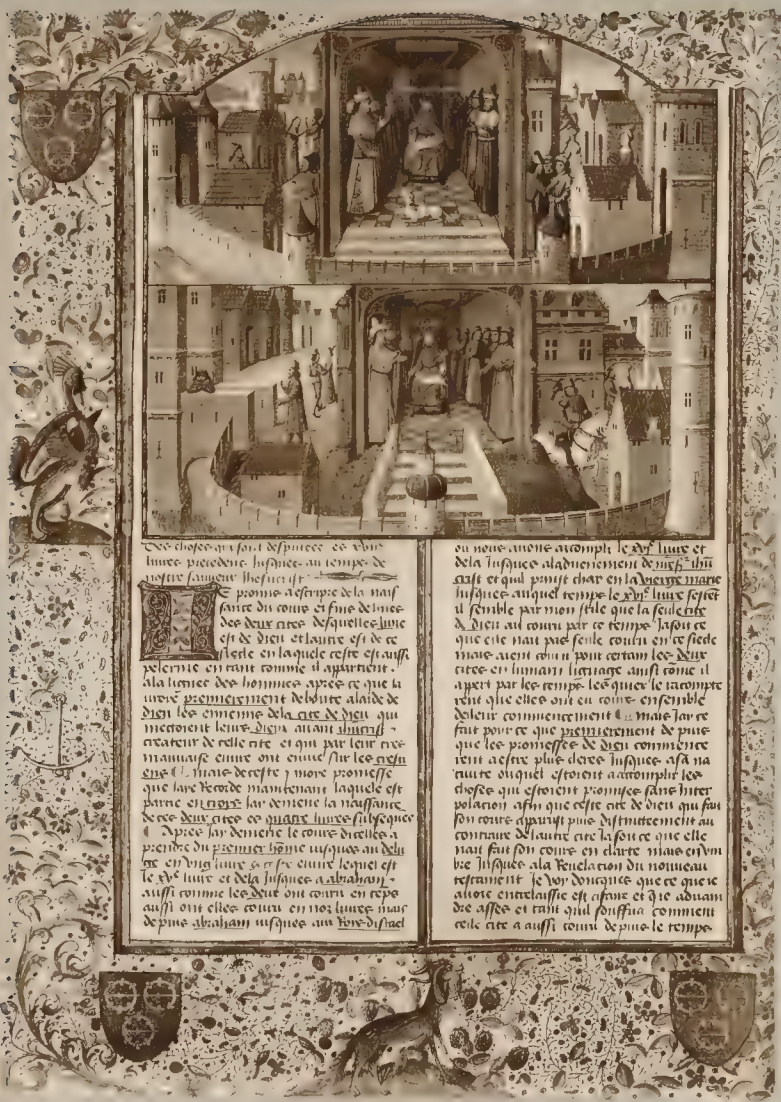 Des choses qui sont desputees es xvii
livres precedens jusques au temps de
nostre sauveur jhesucrist
E promis a escripre de la nais
sance du cours et fins de
des deux cites desquelles lune
est de dieu et lautre est de ce
siecle en laquele ceste est aussi
pelerine en tant comme il appartient
ala lignee des hommes apres ce que ia
premierement deboute alaide de
dieu les ennemis dela cite de dieu qui
mettoient leurs dieux avant
createur de celle cite et qui par leur tres
mauvaise envie ont envie sur les
ens mais de ceste more promesse
que iay Recorde maintenant laquelle est
partie en trois iay demene la naissance
de ces deux cites es quatre livres subseques
Apres iay demene le cours dicelles a
prendre du premier home jusques au delu
ge en ung livre lequel est
le xve livre et dela jusques a abraham
aussi comme les deux ont couru en teps
aussi ont elles couru en noz livres mais
depuis abraham jusques aux Rois disrael
ou nous avons acompli le xvie livre et
dela jusques aladvenement de
crist et quil prinst char en la vierge marie
jusques auquel temps le xviie livre
il semble par mon stile que la seule cite
de dieu ait couru par ce temps Jasoit ce
que elle nait pas seule couru en ce siecle
mais aient couru pour certain les deux
cites en lumain lignage ainsi come il
appert par les temps
rent que elles ont eu cours ensemble
de leur commencement mais Jay ce
fait pour ce que premierement de puis
que les promesses de dieu commence
rent a estre plus cleres jusques asa na
tivite ouquel estoient a acomplir les
choses qui estoient promises sans inter
polacion afin que ceste cite de dieu qui fait
son cours apparust plus distinctement au
contraire de lautre cite Jasoit ce que elle
nait fait son cours en clarte mais en um
bre jusques ala Revelacion du nouveau
testament Je voy doncques que ce que ie
avoie entrelaissie est a faire et que
asses et tant quil souffira comment
celle cite a aussi couru depuis le temps